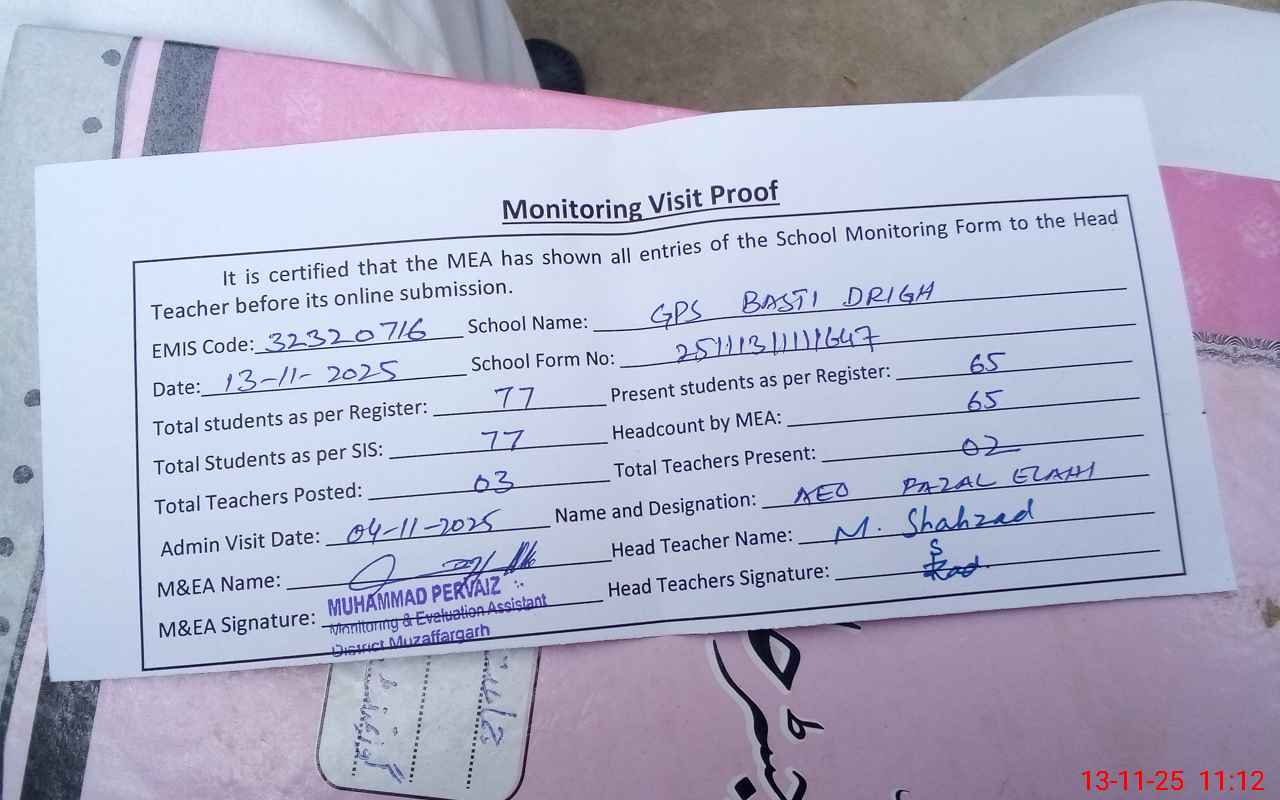 Monitoring Visit Proof
It is certified that the MEA has shown all entries of the School Monitoring Form to the Head
Teacher before its online submission.
EMIS Code: 32320716 School Name: GPS BASTI DRIGH
Date: 13-11-2025 School Form No:
Total students as per Register: 77 Present students as per Register: 65
Total Students as per SIS: 77 Headcount by MEA: 65
Total Teachers Posted: 03 Total Teachers Present: 02
Admin Visit Date: 04-11-2025 Name and Designation: AEO FAZAL ELAHI
M&EA Name: Head Teacher Name: M. Shahzad
M&EA Signature: Head Teachers Signature:
MUHAMMAD PERVAIZ
Monitoring & Evaluation Assistant
District Muzaffargarh
13-11-25 11:12